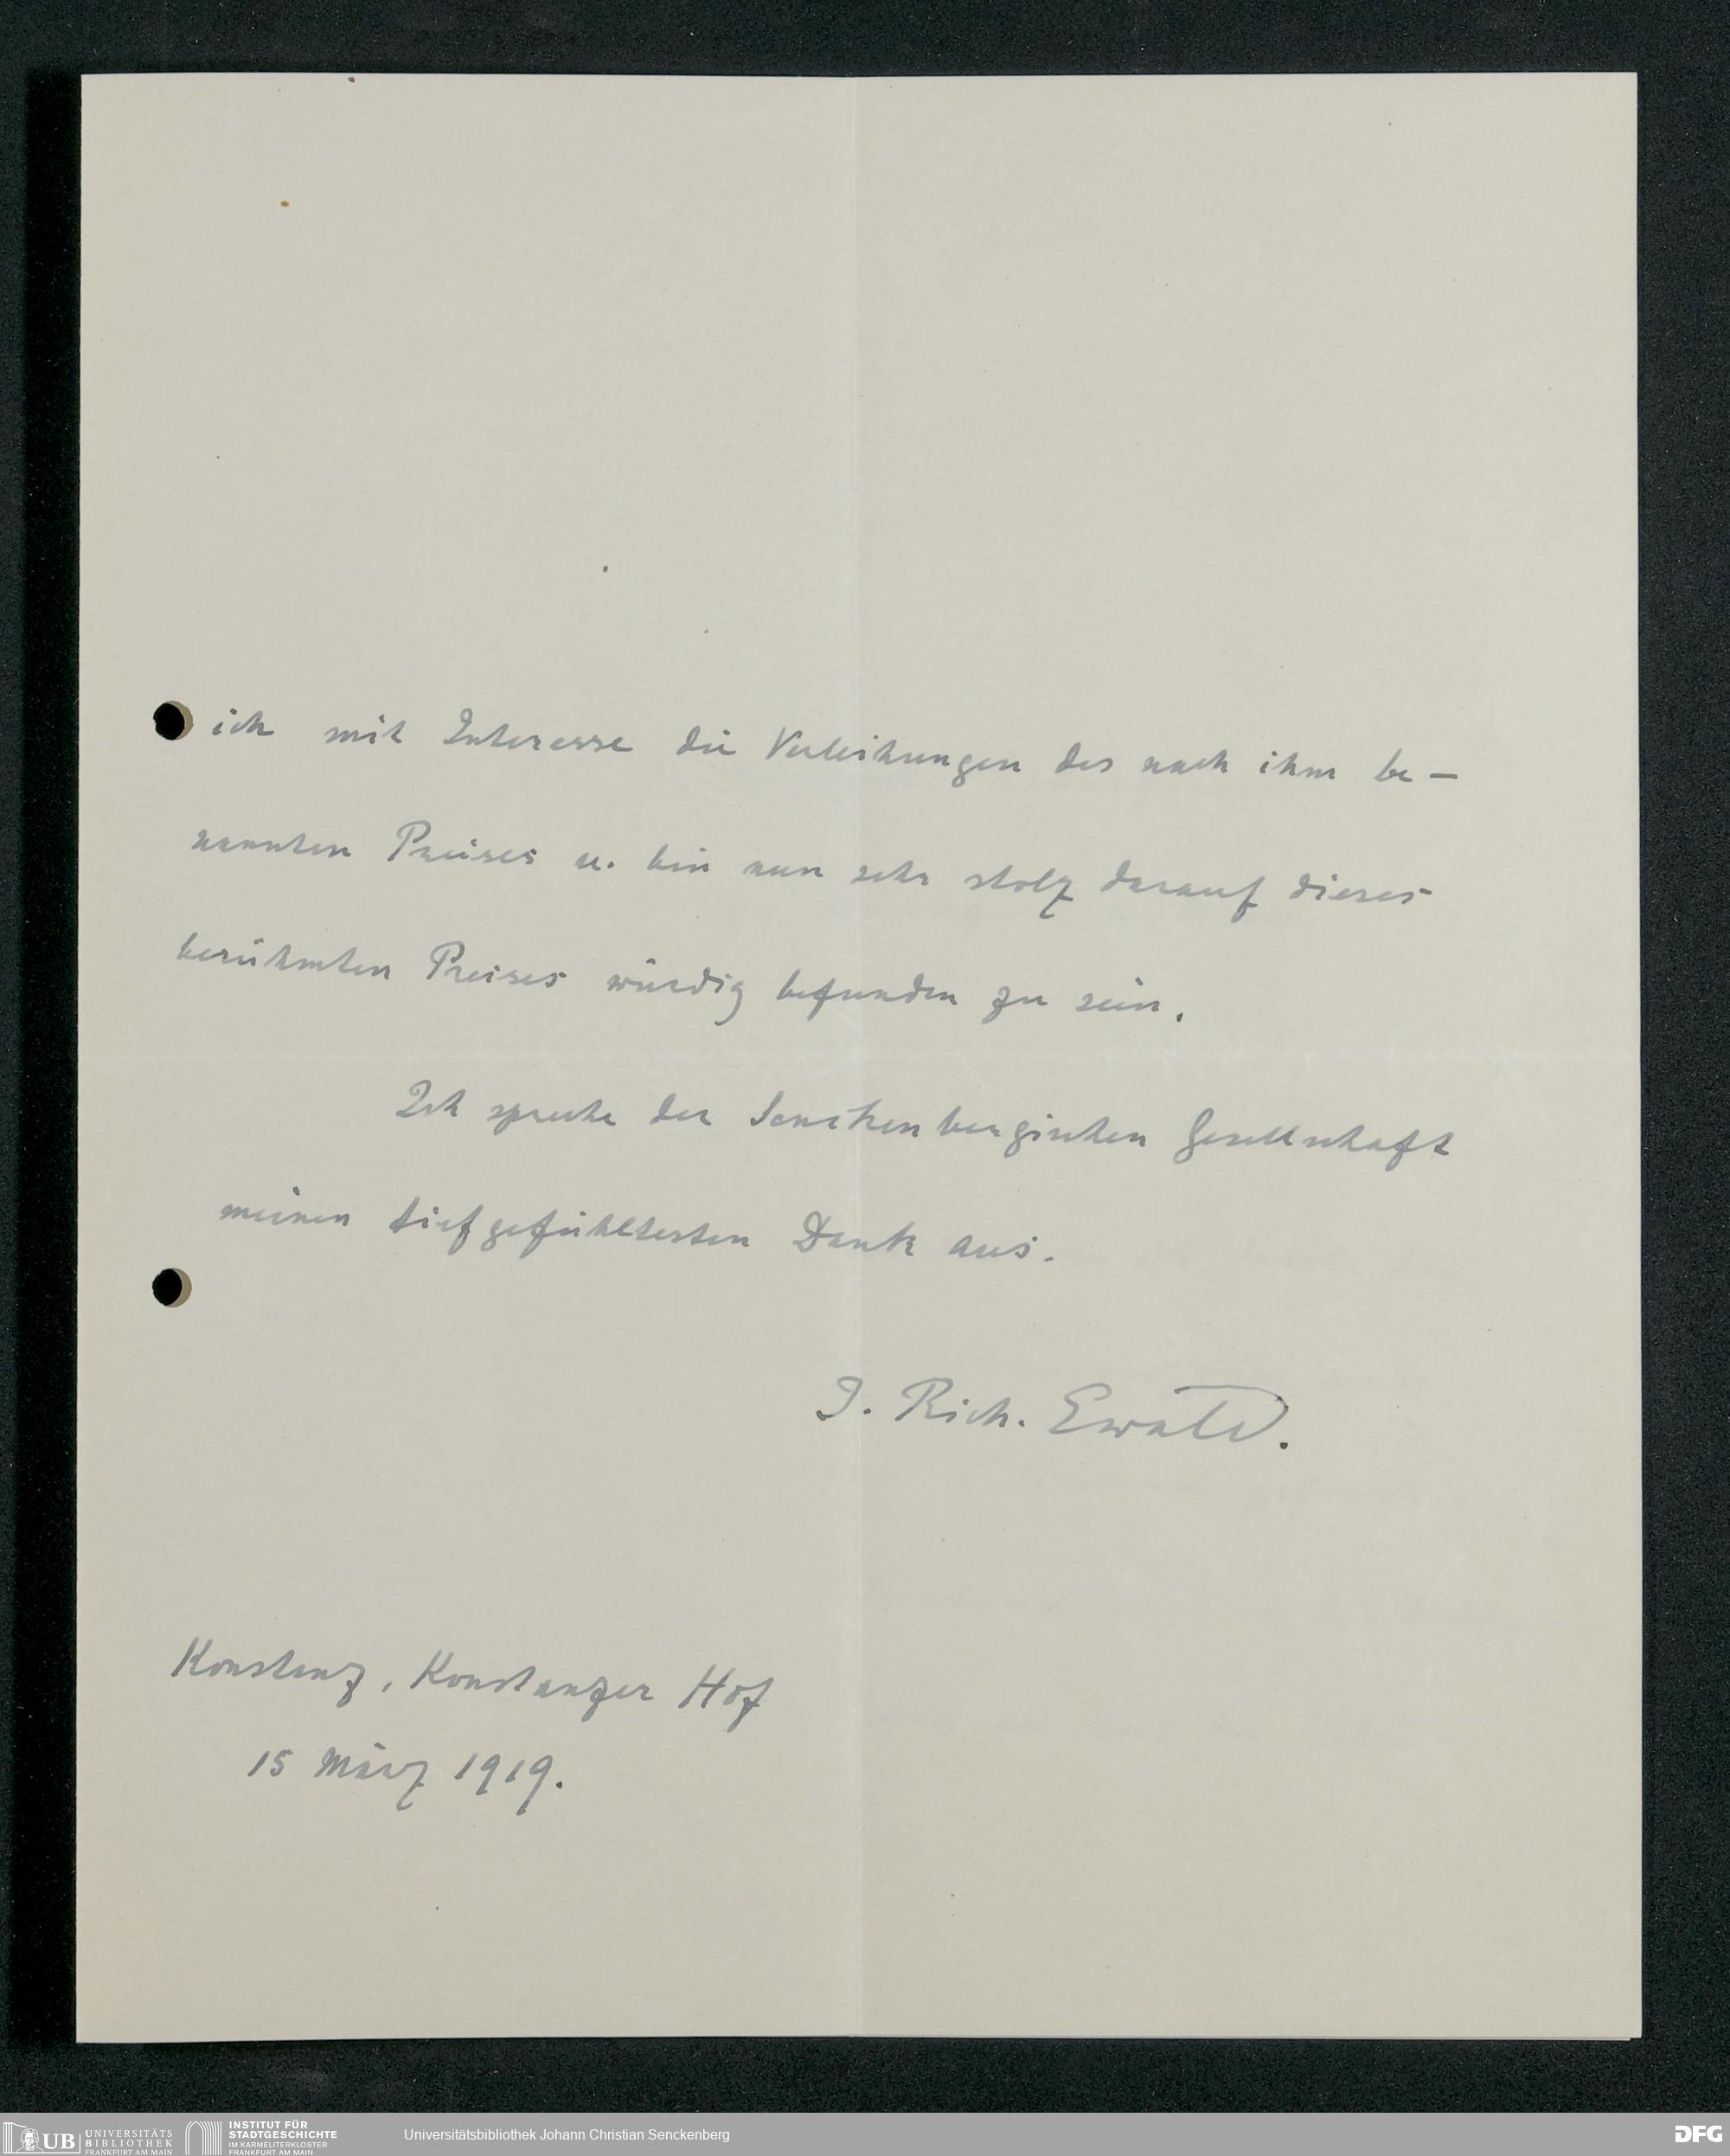 ich mit Interesse die Verleihungen des nach ihm be-
nannten Preises u. bin nun sehr stolz darauf dieses
berühmten Preises würdig befunden zu sein.
Ich spreche der Senckenbergischen Gesellschaft
meinen tiefgefühltesten Dank aus.
J. Rich. Ewald.
Konstanz, Konstanzer Hof
15 März 1919.
UB UNIVERSITÄTS
BIBLIOTHEK
FRANKFURT AM MAIN
INSTITUT FÜR
STADTGESCHICHTE
IM KARMELITERKLOSTER
FRANKFURT AM MAIN
Universitätsbibliothek Johann Christian Senckenberg
DFG